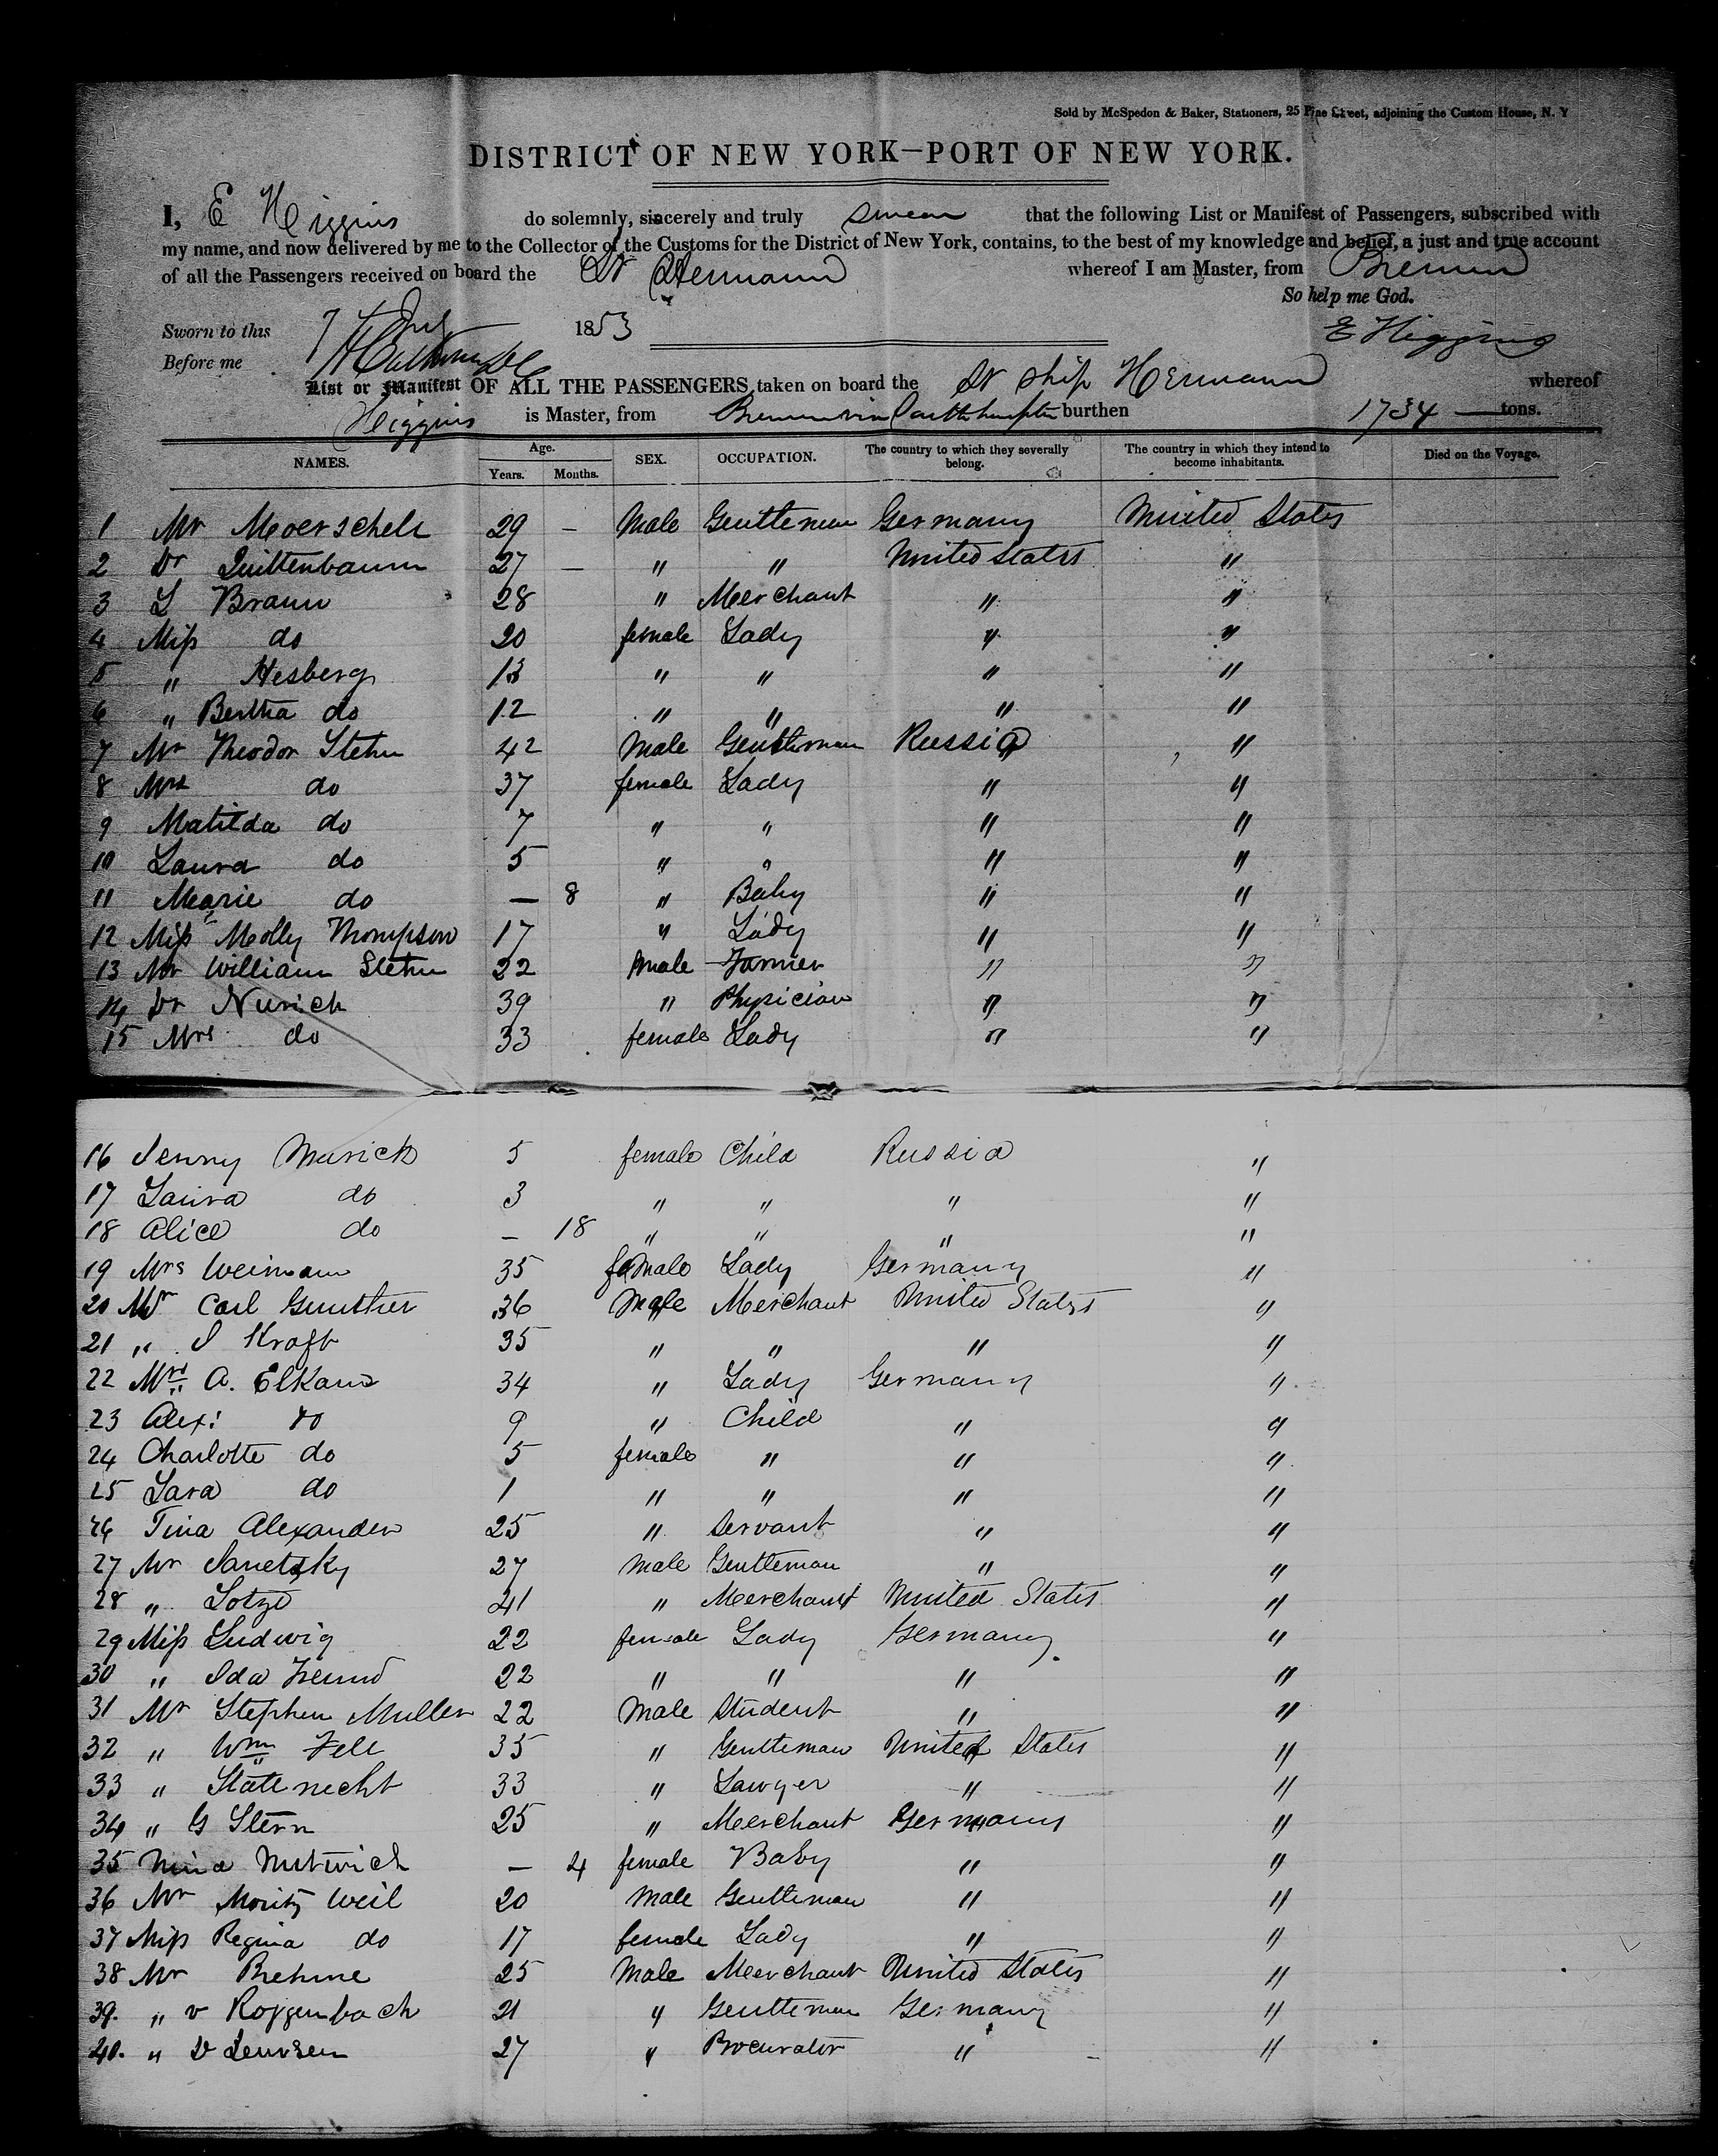 Sold by McSpedon & Baker, Stationers, 25 Pine Street, adjoining the Custom House, N. Y
DISTRICT OF NEW YORK—PORT OF NEW YORK.
I, E Higgins do solemnly, sincerely and truly swear that the following List or Manifest of Passengers, subscribed with
my name, and now delivered by me to the Collector of the Customs for the District of New York, contains, to the best of my knowledge and belief, a just and true account
of all the Passengers received on board the St Hermann whereof I am Master, from Bremen
So help me God.
Sworn to this 7 1853 E Higgins
Before me
List or Manifest OF ALL THE PASSENGERS taken on board the St Ship Hermann whereof
Higgins is Master, from Bremen via Southhampton burthen 1734 tons.
NAMES. Age. Years. Months. SEX. OCCUPATION. The country to which they severally belong. The country in which they intend to become inhabitants. Died on the Voyage.
1 Mr Moerschell 29 — Male Gentleman Germany United States
2 Dr Quittenbaum 27 — " " United States "
3 L Braun 28 " Merchant " "
4 Miss do 20 female Lady " "
5 " Hesberg 13 " " " "
6 " Bertha do 12 " " " "
7 Mr Theodor Stehn 42 Male Gentleman Russia "
8 Mrs do 37 female Lady " "
9 Matilda do 7 " " " "
10 Laura do 5 " " " "
11 Marie do — 8 " Baby " "
12 Miss Molly Thompson 17 " Lady " "
13 Mr William Stehn 22 Male Farmer " "
14 Dr Nurich 39 " Physician " "
15 Mrs do 33 female Lady " "
16 Jenny Nurich 5 female Child Russia "
17 Laura do 3 " " " "
18 Alice do — 18 " " " "
19 Mrs Weimann 35 female Lady Germany "
20 Mr Carl Gunther 36 Male Merchant United States "
21 " J Kraft 35 " " " "
22 Mrs A. Elkans 34 " Lady Germany "
23 Alex: do 9 " Child " "
24 Charlotte do 5 female " " "
25 Sara do 1 " " " "
26 Tina Alexander 25 " Servant " "
27 Mr Janetzky 27 Male Gentleman " "
28 " Lotze 41 " Merchant United States "
29 Miss Ludwig 22 female Lady Germany "
30 " Ida Freund 22 " " " "
31 Mr Stephen Muller 22 Male Student " "
32 " Wm Fell 35 " Gentleman United States "
33 " Statenecht 33 " Lawyer " "
34 " G Stern 25 " Merchant Germany "
35 Nina Nutwich — 4 female Baby " "
36 Mr Moritz Weil 20 Male Gentleman " "
37 Miss Regina do 17 female Lady " "
38 Mr Brehme 25 Male Merchant United States "
39. " v Roggenbach 21 " Gentleman Germany "
40. " D 27 " Procurator " "